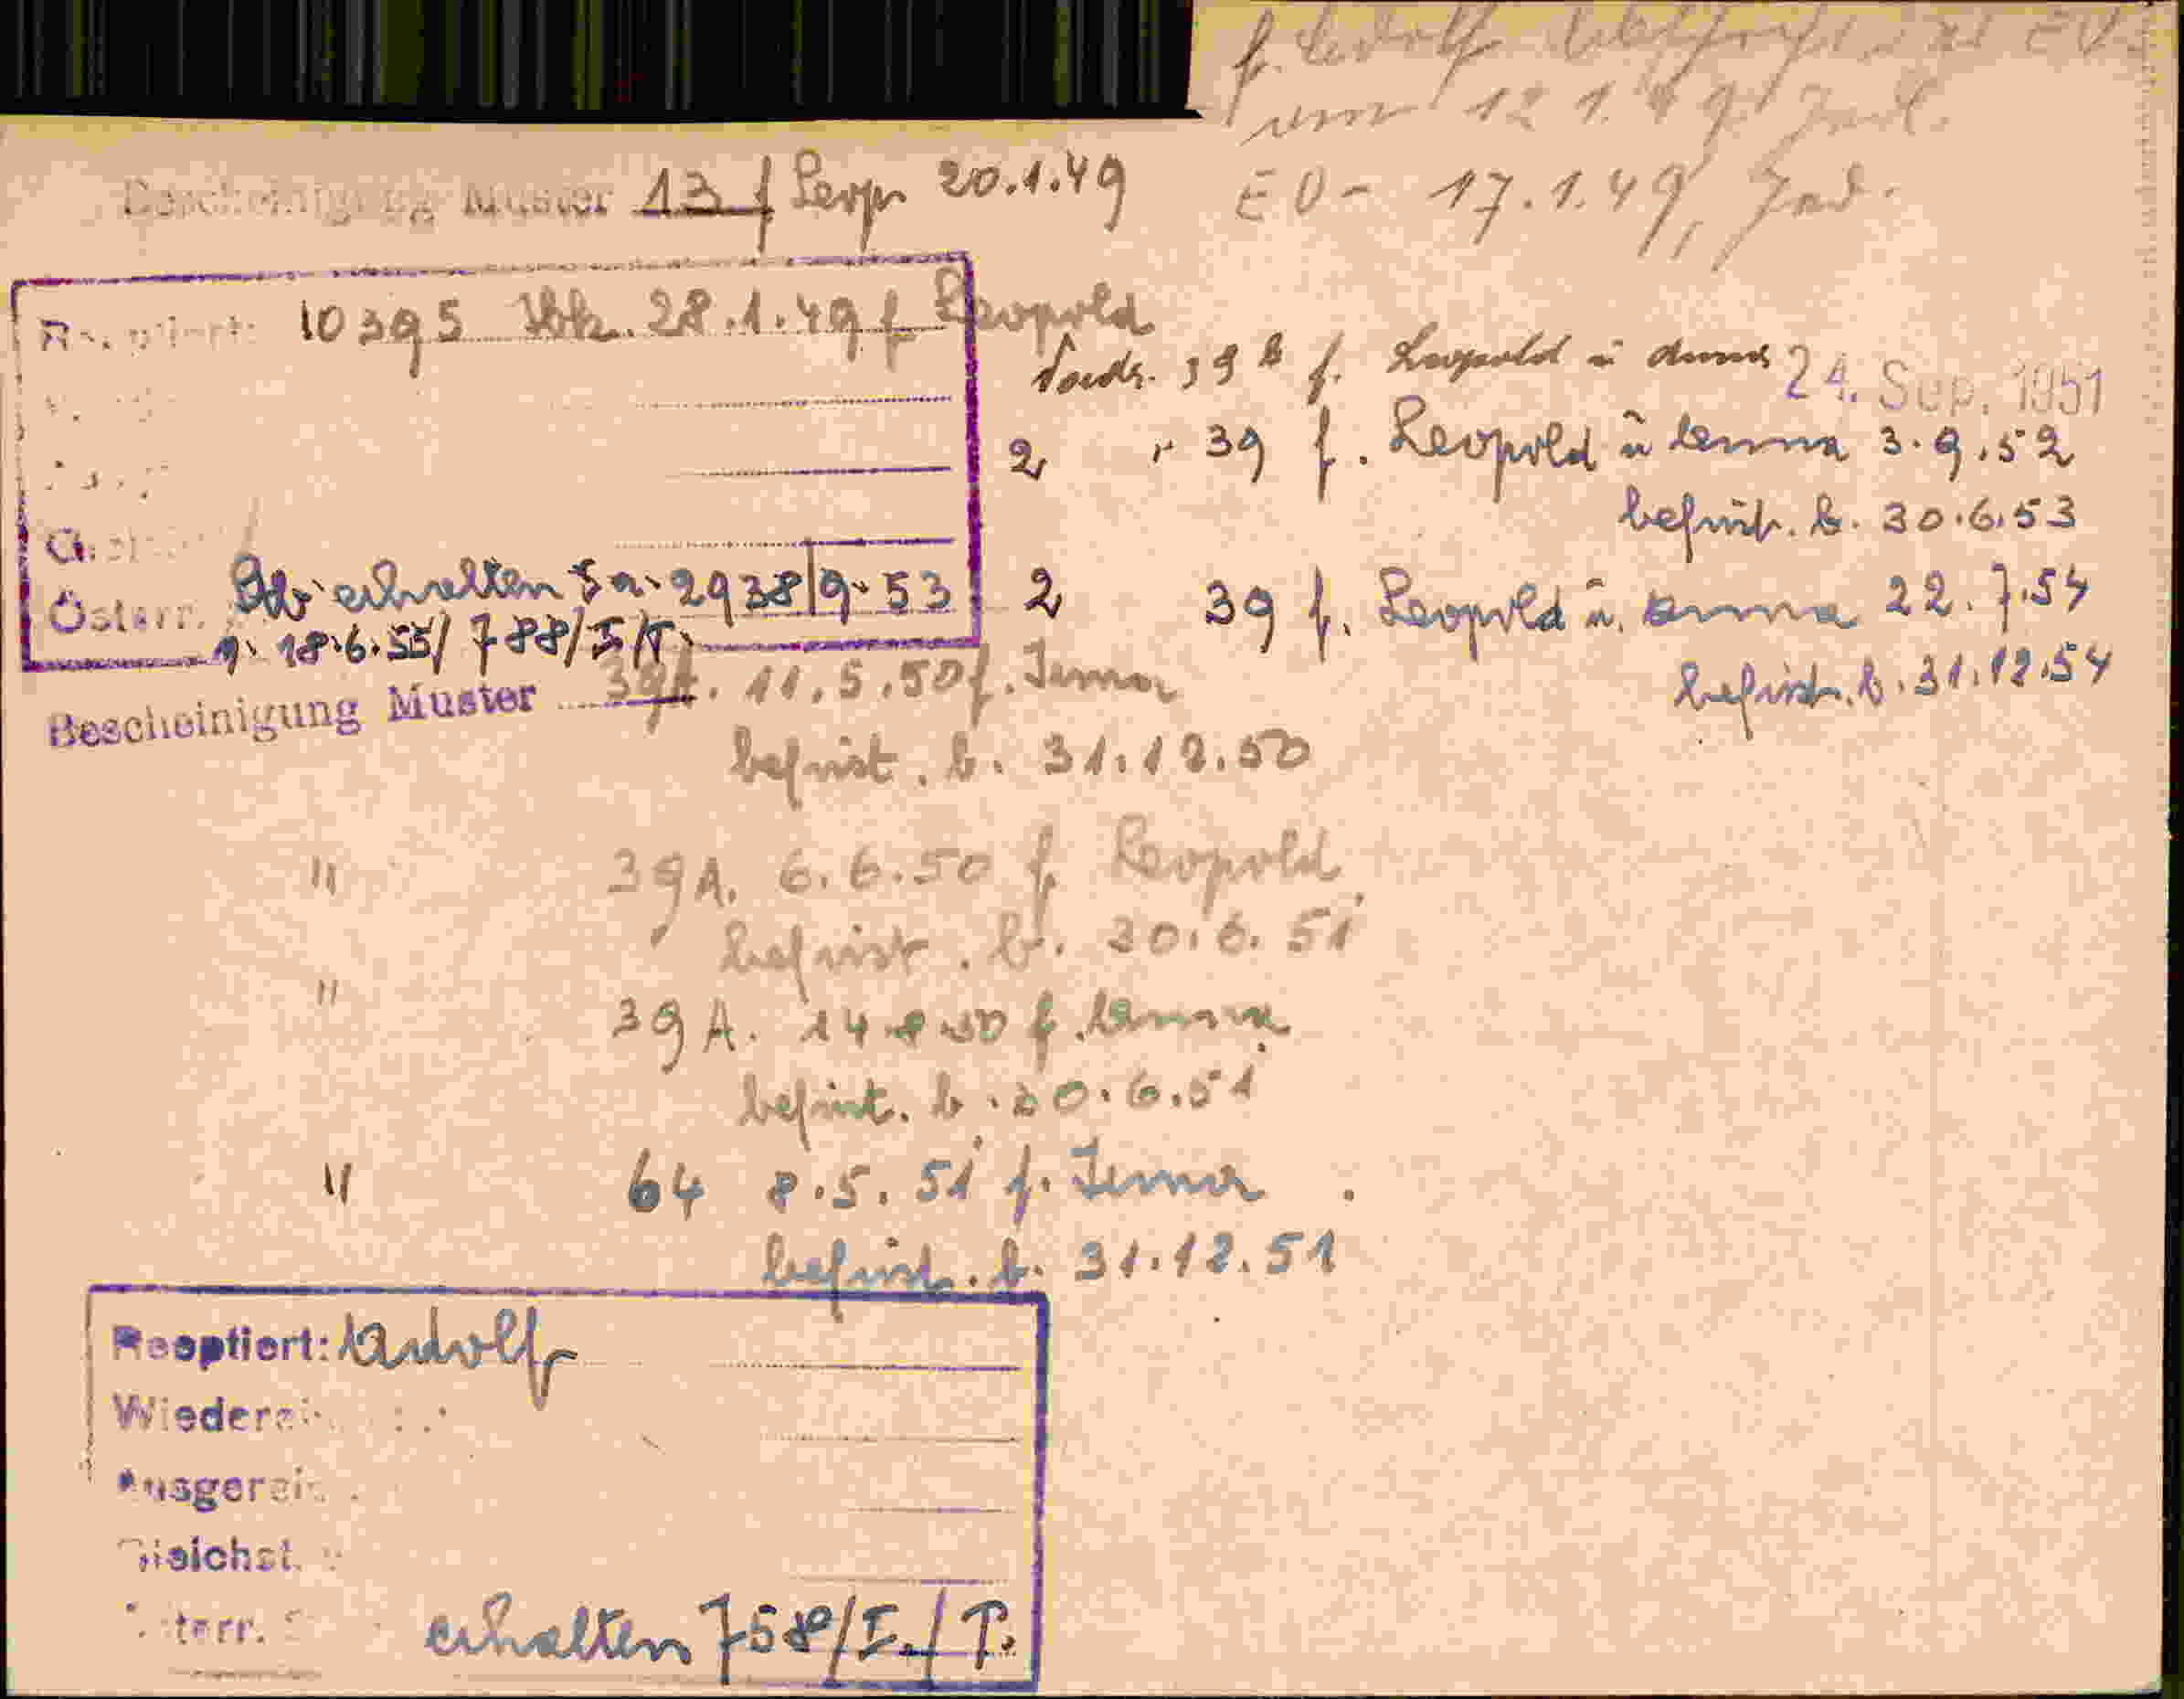 f. Adolf
vom 12.1.49. Ind.
Bescheinigung Muster 13 f Leop 20.1.49
EO- 17.1.49, Ind.
10395 Vbk. 28.1.49 f Leopold
39 b f. Leopold u Anna 24. Sep. 1951
2 " 39 f. Leopold u Anna 3.9.52
befrist. b. 30.6.53
Österr. erhalten 2938/9.53
2 39 f. Leopold u. Anna 22.7.54
18.6.55/788/I/T.
befrist. b. 31.12.54
Bescheinigung Muster 39A. 11.5.50 f. Irma
befrist. b. 31.12.50
" 39A. 6.6.50 f. Leopold
befrist. b. 30.6.51
" 39A. 14.8.50 f. Anna
befrist. b. 30.6.51
" 64 8.5.51 f. Irma
befrist. b. 31.12.51
Reoptiert: Adolf
Wiederei
Ausgerei
Gleichst.
terr. erhalten 758/I./T.